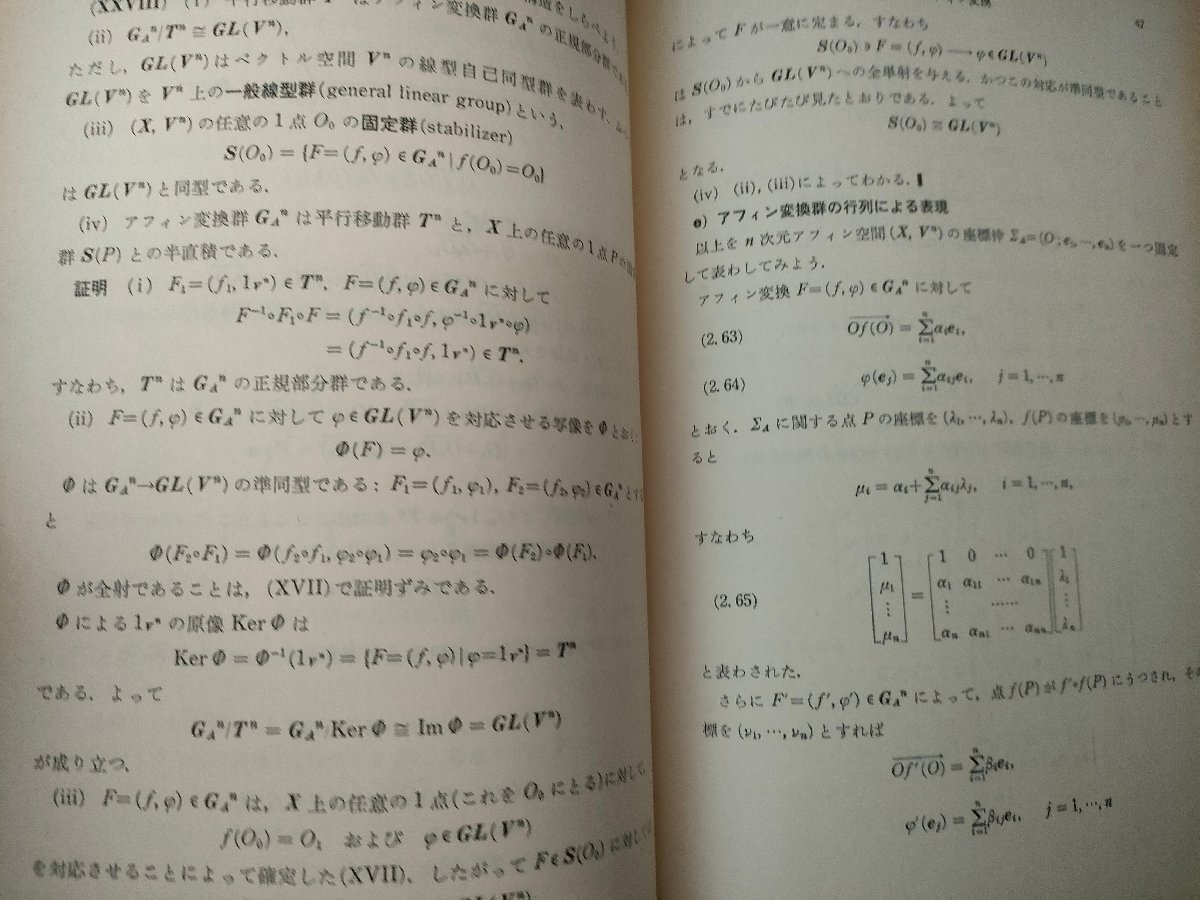 (XXVIII) (i) 平行移動群 Tⁿ はアフィン変換群 G_Aⁿ の正規部分群で
(ii) G_Aⁿ/Tⁿ ≅ GL(Vⁿ).
ただし, GL(Vⁿ)はベクトル空間 Vⁿ の線型自己同型群を表わす.
GL(Vⁿ)を Vⁿ 上の一般線型群(general linear group)という.
(iii) (X, Vⁿ) の任意の1点 O₀ の固定群(stabilizer)
S(O₀) = {F=(f, φ) ∈ G_Aⁿ | f(O₀)=O₀}
は GL(Vⁿ) と同型である.
(iv) アフィン変換群 G_Aⁿ は平行移動群 Tⁿ と, X 上の任意の1点 P の
群 S(P) との半直積である.
証明 (i) F₁=(f₁, 1_Vⁿ) ∈ Tⁿ, F=(f, φ) ∈ G_Aⁿ に対して
F⁻¹∘F₁∘F = (f⁻¹∘f₁∘f, φ⁻¹∘1_Vⁿ∘φ)
= (f⁻¹∘f₁∘f, 1_Vⁿ) ∈ Tⁿ.
すなわち, Tⁿ は G_Aⁿ の正規部分群である.
(ii) F=(f, φ) ∈ G_Aⁿ に対して φ ∈ GL(Vⁿ) を対応させる写像を Φ とおく
Φ(F) = φ.
Φ は G_Aⁿ→GL(Vⁿ) の準同型である: F₁=(f₁, φ₁), F₂=(f₂, φ₂) ∈ G_Aⁿ とする
と
Φ(F₂∘F₁) = Φ(f₂∘f₁, φ₂∘φ₁) = φ₂∘φ₁ = Φ(F₂)∘Φ(F₁).
Φ が全射であることは, (XVII) で証明ずみである.
Φ による 1_Vⁿ の原像 Ker Φ は
Ker Φ = Φ⁻¹(1_Vⁿ) = {F=(f, φ) | φ=1_Vⁿ} = Tⁿ
である. よって
G_Aⁿ/Tⁿ = G_Aⁿ/Ker Φ ≅ Im Φ = GL(Vⁿ)
が成り立つ.
(iii) F=(f, φ) ∈ G_Aⁿ は, X 上の任意の1点(これを O₀ にとる)に対して,
f(O₀) = O₁ および φ∈GL(Vⁿ)
を対応させることによって確定した(XVII). したがって F∈S(O₀) に対して
GL(Vⁿ)
変換
47
によって F が一意に定まる. すなわち
S(O₀) ∋ F = (f, φ) ⟶ φ∈GL(Vⁿ)
は S(O₀) から GL(Vⁿ) への全単射を与える. かつこの対応が準同型であること
は, すでにたびたび見たとおりである. よって
S(O₀) ≅ GL(Vⁿ)
となる.
(iv) (ii), (iii)によってわかる. ▮
e) アフィン変換群の行列による表現
以上を n 次元アフィン空間 (X, Vⁿ) の座標枠 Σ_A=(O; e₁, ⋯, eₙ) を一つ固定
して表わしてみよう.
アフィン変換 F=(f, φ) ∈ G_Aⁿ に対して
(2.63) Of(O)→ = Σ_{i=1}^{n} αᵢeᵢ,
(2.64) φ(eⱼ) = Σ_{i=1}^{n} αᵢⱼeᵢ, j = 1, ⋯, n
とおく. Σ_A に関する点 P の座標を (λ₁, ⋯, λₙ), f(P) の座標を (μ₁, ⋯, μₙ) とす
ると
μᵢ = αᵢ + Σ_{j=1}^{n} αᵢⱼλⱼ, i = 1, ⋯, n,
すなわち
[1] [1 0 ⋯ 0][1]
[μ₁] [α₁ α₁₁ ⋯ α₁ₙ][λ₁]
(2.65) [⋮] = [⋮ ⋯⋯][⋮]
[μₙ] [αₙ αₙ₁ ⋯ αₙₙ][λₙ]
と表わされた.
さらに F′=(f′, φ′) ∈ G_Aⁿ によって, 点 f(P) が f′∘f(P) にうつされ, その
標を (ν₁, ⋯, νₙ) とすれば
Of′(O)→ = Σ_{i=1}^{n} βᵢeᵢ,
φ′(eⱼ) = Σ_{i=1}^{n} βᵢⱼeᵢ, j = 1, ⋯, n